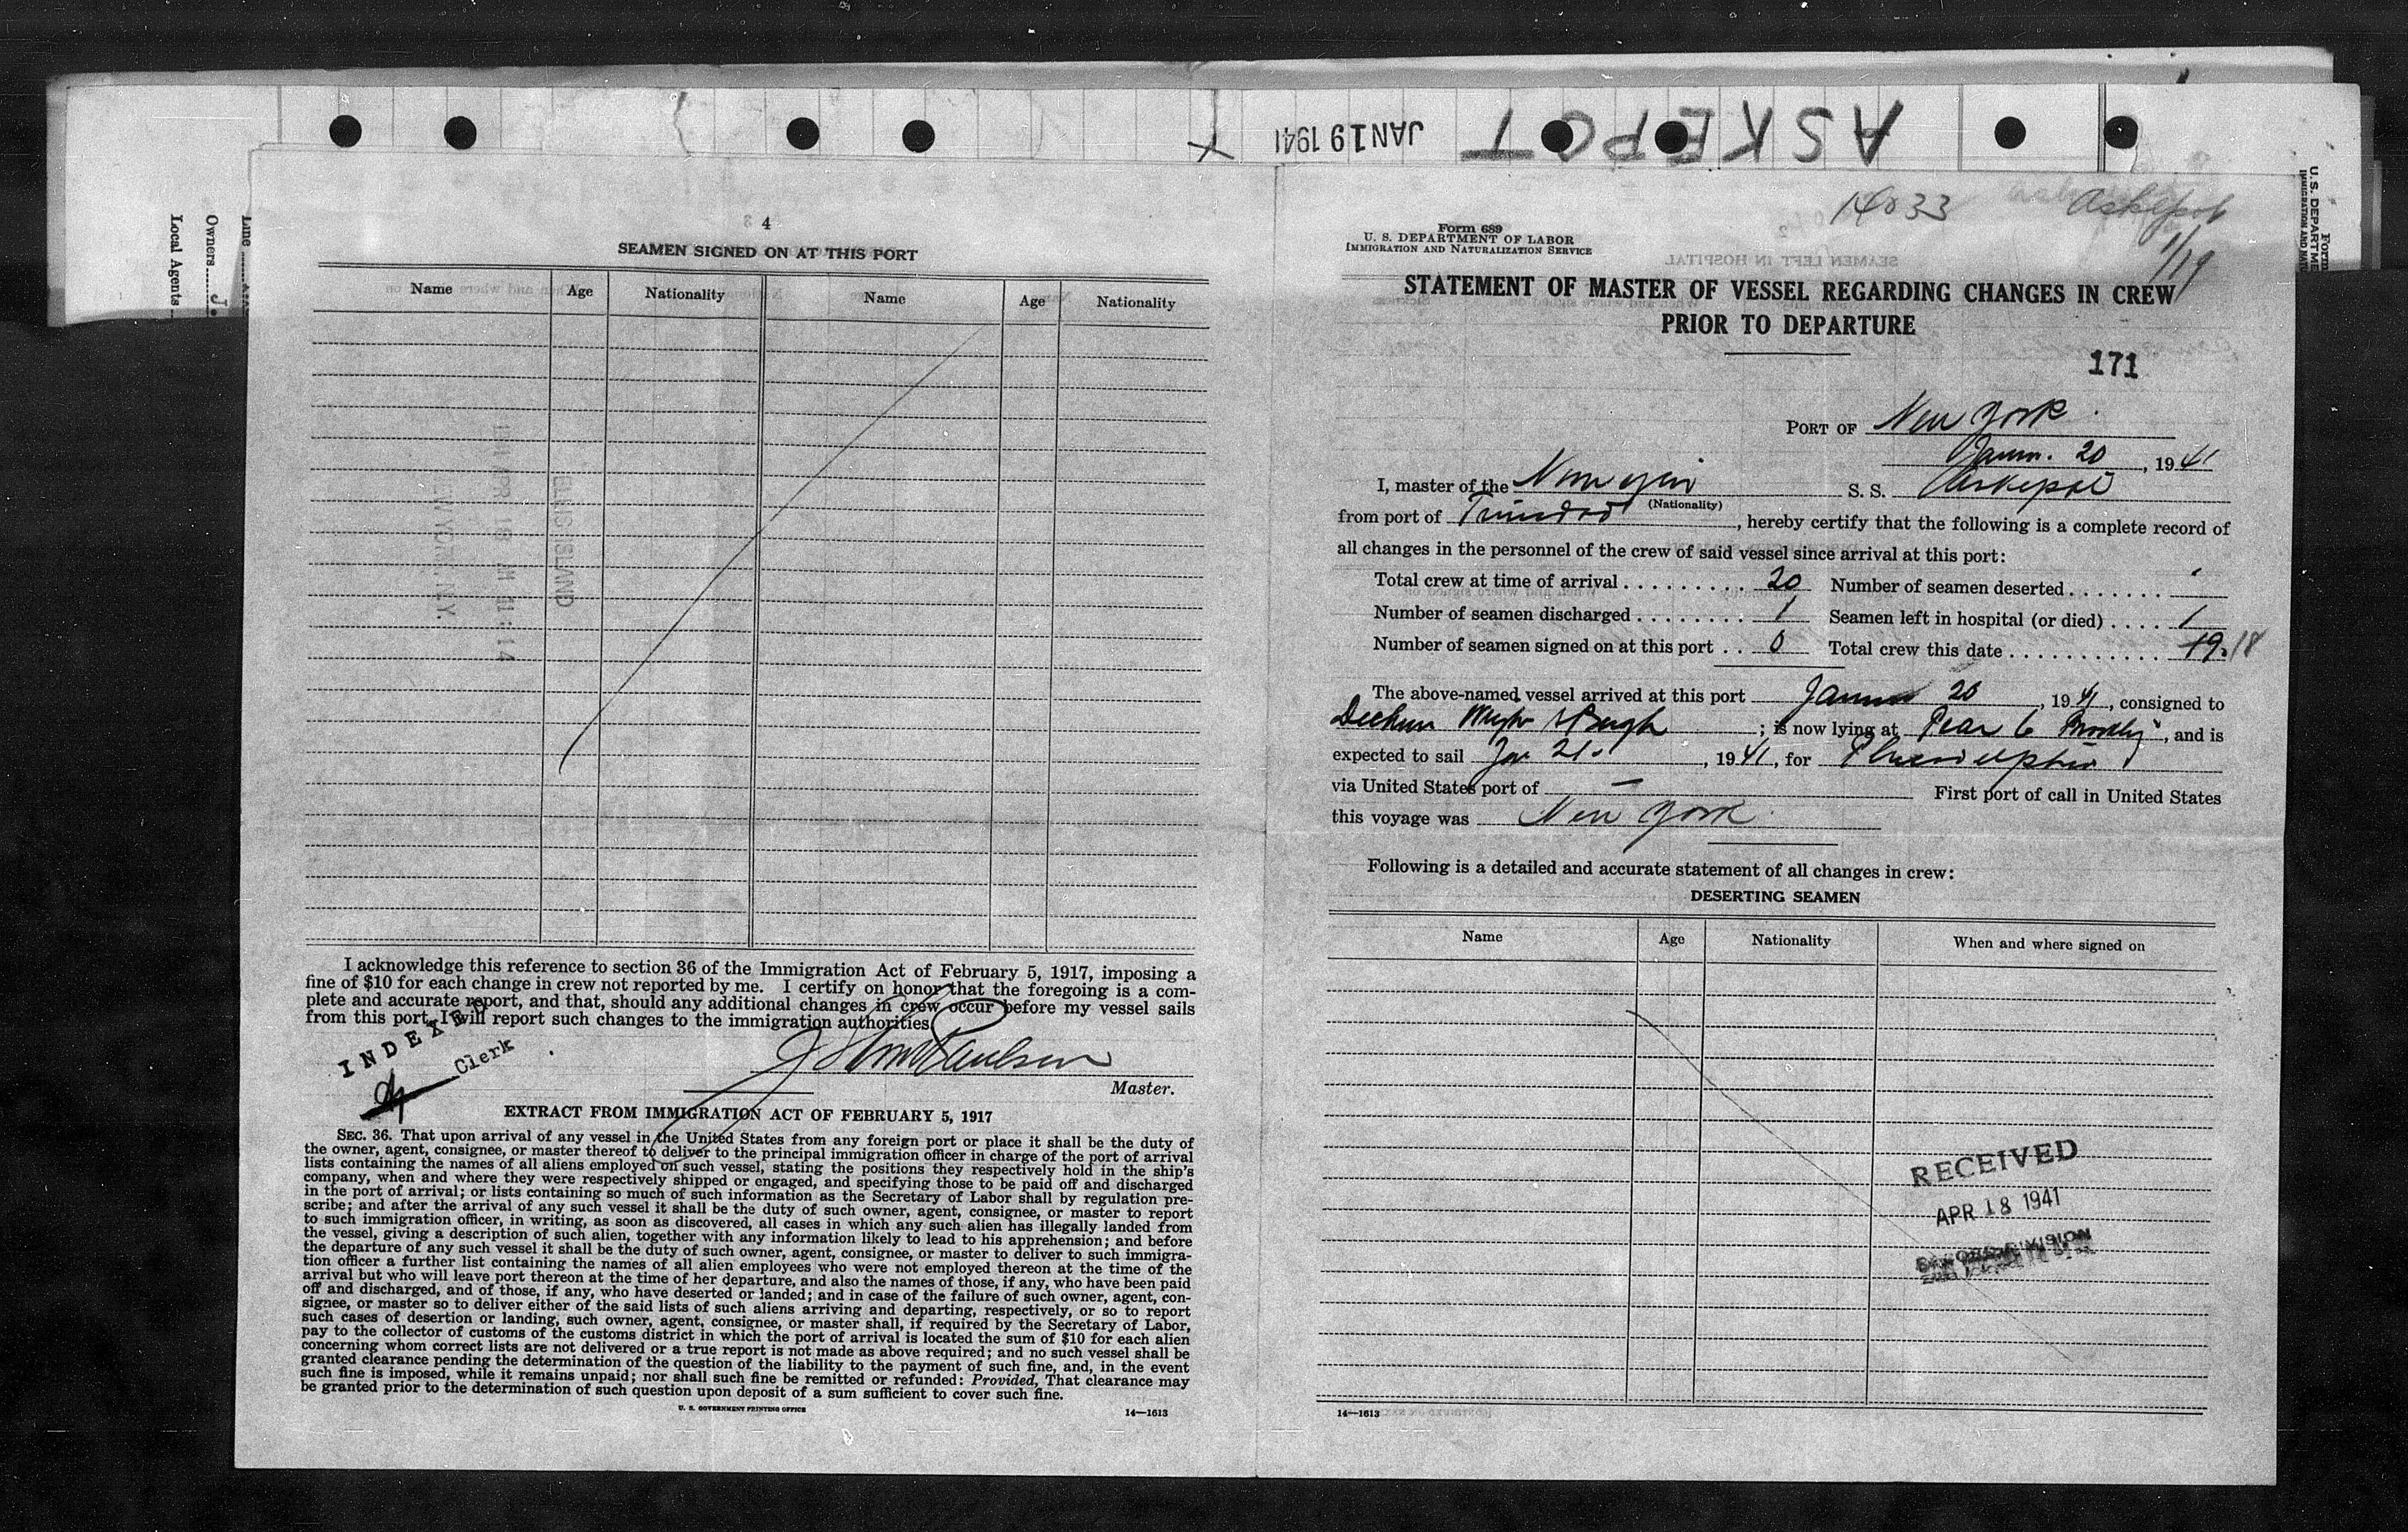 JAN 19 1941
ASKEPOT
Local Agents
Owners J.
Line
4
SEAMEN SIGNED ON AT THIS PORT
Name Age Nationality Name Age Nationality
ELLIS ISLAND
I acknowledge this reference to section 36 of the Immigration Act of February 5, 1917, imposing a
fine of $10 for each change in crew not reported by me. I certify on honor that the foregoing is a com-
plete and accurate report, and that, should any additional changes in crew occur before my vessel sails
from this port, I will report such changes to the immigration authorities.
INDEXED
Clerk
Master.
EXTRACT FROM IMMIGRATION ACT OF FEBRUARY 5, 1917
SEC. 36. That upon arrival of any vessel in the United States from any foreign port or place it shall be the duty of
the owner, agent, consignee, or master thereof to deliver to the principal immigration officer in charge of the port of arrival
lists containing the names of all aliens employed on such vessel, stating the positions they respectively hold in the ship's
company, when and where they were respectively shipped or engaged, and specifying those to be paid off and discharged
in the port of arrival; or lists containing so much of such information as the Secretary of Labor shall by regulation pre-
scribe; and after the arrival of any such vessel it shall be the duty of such owner, agent, consignee, or master to report
to such immigration officer, in writing, as soon as discovered, all cases in which any such alien has illegally landed from
the vessel, giving a description of such alien, together with any information likely to lead to his apprehension; and before
the departure of any such vessel it shall be the duty of such owner, agent, consignee, or master to deliver to such immigra-
tion officer a further list containing the names of all alien employees who were not employed thereon at the time of the
arrival but who will leave port thereon at the time of her departure, and also the names of those, if any, who have been paid
off and discharged, and of those, if any, who have deserted or landed; and in case of the failure of such owner, agent, con-
signee, or master so to deliver either of the said lists of such aliens arriving and departing, respectively, or so to report
such cases of desertion or landing, such owner, agent, consignee, or master shall, if required by the Secretary of Labor,
pay to the collector of customs of the customs district in which the port of arrival is located the sum of $10 for each alien
concerning whom correct lists are not delivered or a true report is not made as above required; and no such vessel shall be
granted clearance pending the determination of the question of the liability to the payment of such fine, and, in the event
such fine is imposed, while it remains unpaid; nor shall such fine be remitted or refunded: Provided, That clearance may
be granted prior to the determination of such question upon deposit of a sum sufficient to cover such fine.
U. S. GOVERNMENT PRINTING OFFICE 14—1613
Askepot
1/19
Form 689
U. S. DEPARTMENT OF LABOR
IMMIGRATION AND NATURALIZATION SERVICE
STATEMENT OF MASTER OF VESSEL REGARDING CHANGES IN CREW
PRIOR TO DEPARTURE
171
PORT OF New York
20, 1941
I, master of the S. S. Askepot
(Nationality)
from port of Trinidad, hereby certify that the following is a complete record of
all changes in the personnel of the crew of said vessel since arrival at this port:
Total crew at time of arrival 20 Number of seamen deserted
Number of seamen discharged 1 Seamen left in hospital (or died) 1
Number of seamen signed on at this port 0 Total crew this date 19. 18
The above-named vessel arrived at this port 20, 1941, consigned to
; is now lying at 6, and is
expected to sail Jan 21, 1941, for
via United States port of — First port of call in United States
this voyage was New York
Following is a detailed and accurate statement of all changes in crew:
DESERTING SEAMEN
Name Age Nationality When and where signed on
RECEIVED
APR 18 1941
14—1613